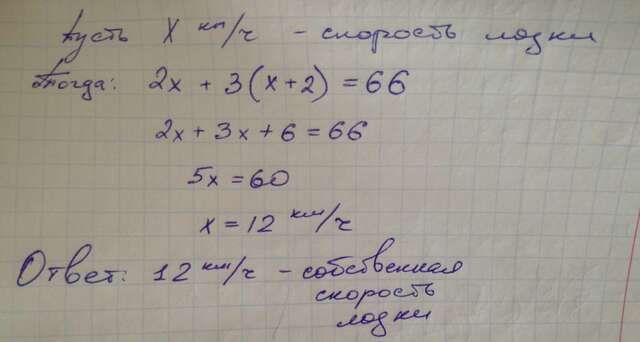 Пусть x км/ч - скорость лодки
Тогда: 2x + 3(x+2) = 66
2x + 3x + 6 = 66
5x = 60
x = 12 км/ч
Ответ: 12 км/ч - собственная
скорость
лодки